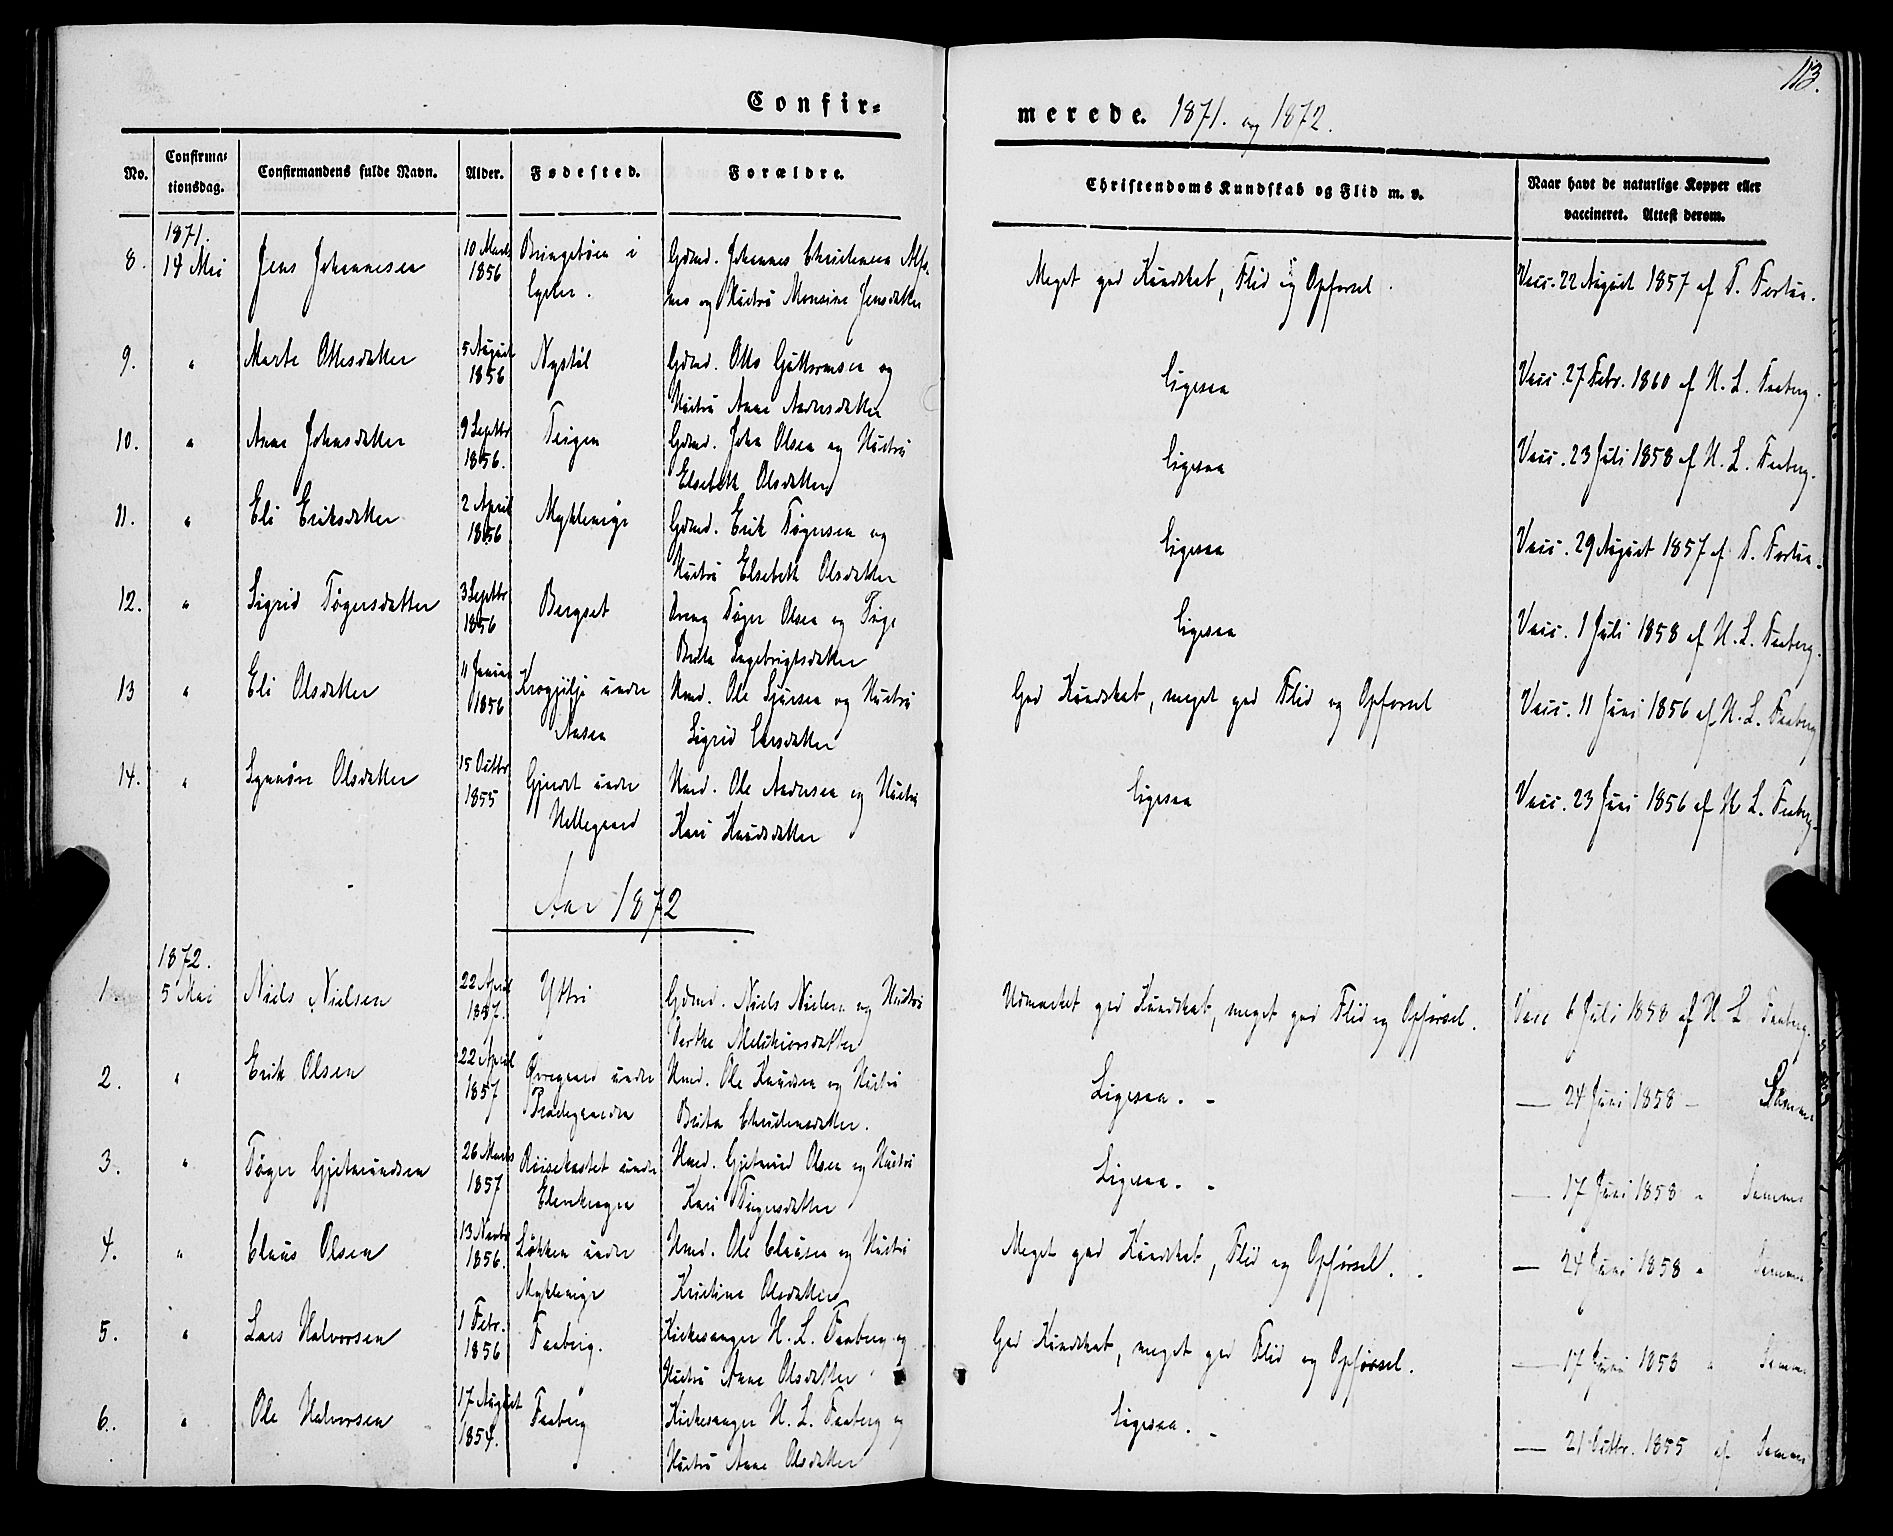 113.
Confir-
merede. 1871. og 1872.
No.
Confirma-
tionsdag.
Confirmandens fulde Navn.
Alder.
Fødested.
Forældre.
Christendoms Kundskab og Flid m. v.
Naar havt de naturlige Kopper eller
vaccineret. Attest derom.
1871.
8. 14 Mai Jens Johannesen 10 Marts Gdmd. Johannes Christensen
1856
nes og Hustru Monsine Jensdatter
Meget god Kundskab, Flid og Opførsel.
Vacc. 22 August 1857 af T. Fortun.
9. " Marte Ottesdatter 5 August Nystøl Gdmd. Otto Guttormsen og
1856 Hustru Anna Andersdatter
Ligesaa
Vacc. 27 Febr. 1860 af H. L. Faaberg.
10. " Anna Johnsdatter 9 Septbr Teigen Gdmd. John Olsen og Hustru
1856. Elsebeth Olsdatter
Ligesaa
Vacc. 23 Juli 1858 af H. L. Faaberg.
11. " Eli Eriksdatter 2 April Myklemyr Gdmd. Erik Tøgersen og
1856 Hustru Elsebeth Olsdatter
Ligesaa
Vacc. 29 August 1857 af T. Fortun.
12. " Sigrid Tøgersdatter 3 Septbr Bergset Tøger Olsen og Pige
1856 Brita Ingebrigtsdatter
Ligesaa
Vacc. 1 Juli 1858 af H. L. Faaberg.
13 " Eli Olsdatter 11 Januar under Hmd. Ole Sjursen og Hustru
1856 Aasen Sigrid Larsdatter
God Kundskab, meget god Flid og Opførsel
Vacc. 11 Juni 1856 af H. L. Faaberg
14. " Synnøve Olsdatter 15 Octbr under Hmd. Ole Andersen og Hustru
1855 Hellegaard Kari Knudsdatter
Ligesaa
Vacc. 23 Juni 1856 af H L. Faaberg.
Aar 1872
1872.
1. 5 Mai Niels Nielsen 22 April Yttri Gdmd. Niels Nielsen og Hustru
1857. Marthe Melchiorsdatter
Udmærket god Kundskab, meget god Flid og Opførsel.
Vacc 6 Juli 1858 af H L Faaberg.
2. " Erik Olsen 22 April Øvregaard under Hmd. Ole Knudsen og Hustru
1857 Prestegaarden Brita Christensdatter.
Ligesaa. -
— 24 Juni 1858 - Samme
3. " Tøger Gjetmundsen 26 Marts under Hmd. Gjetmund Olsen og Hustru
1857 Elvekragen Kari Tøgersdatter
Ligesaa. -
— 17 Juni 1858 " Samme
4. " Claus Olsen 13 Novbr Løkken under Hmd. Ole Clausen og Hustru
1856. Myklemyr Kristine Olsdatter
Meget god Kundskab, Flid og Opførsel. -
— 24 Juni 1858 " Samme
5. " Lars Halvorsen 1 Febr. Faaberg. Kirkesanger H. L. Faaberg og
1856 Hustru Anne Olsdatter
God Kundskab, meget god Flid og Opførsel.
— 17 Juni 1858 " Samme
6. " Ole Halvorsen 17 August Faaberg Kirkesanger H. L. Faaberg og
1854. Hustru Anne Olsdatter
Ligesaa. -
— 21 Octbr. 1855 af Samme